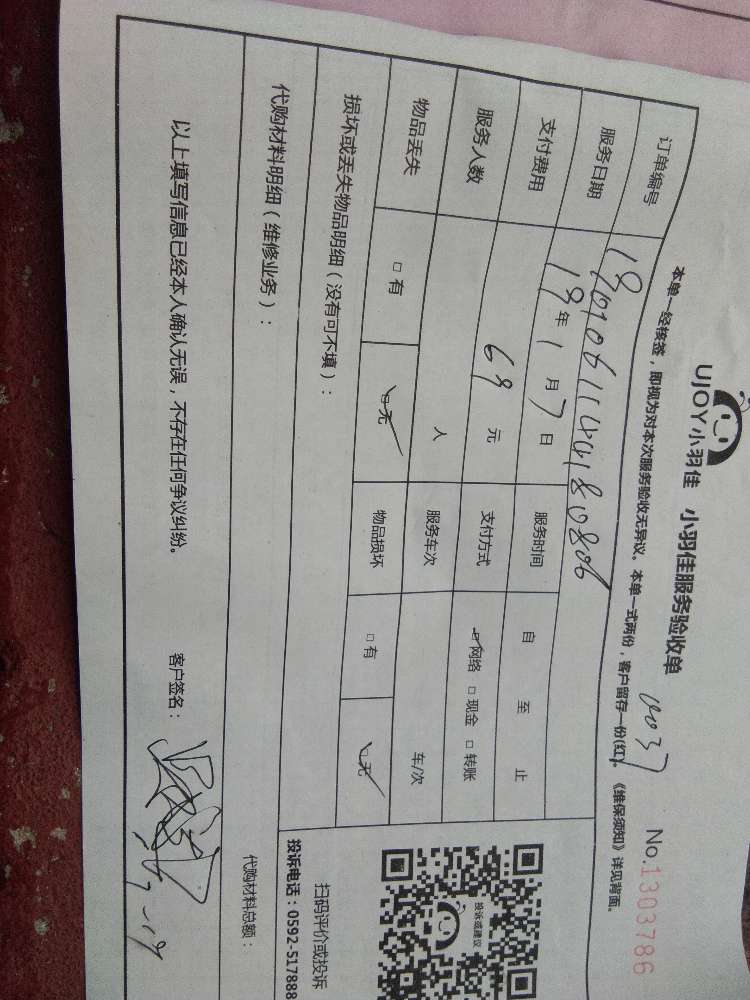 UJOY小羽佳 小羽佳服务验收单 0037 No.1303786
本单一经核签，即视为对本次服务验收无异议。本单一式两份，客户留存一份(红)。《维保须知》详见背面。
订单编号
服务日期 19年1月7日 服务时间 自 至 止
支付费用 69元 支付方式 ☑网络 □现金 □转账
服务人数 人 服务车次 车/次
物品丢失 □有 ☑无 物品损坏 □有 ☑无
损坏或丢失物品明细（没有可不填）：
投诉或建议
扫码评价或投诉
投诉电话：0592-517888
代购材料明细（维修业务）： 代购材料总额：
以上填写信息已经本人确认无误，不存在任何争议纠纷。 客户签名：